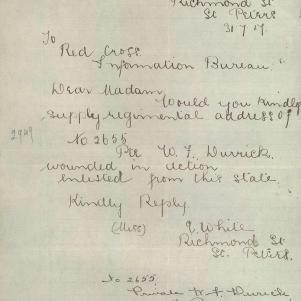 Richmond St
St Peters
31 7 17
To
Red Cross
Information Bureau.
Dear Madam,
Would you kindly
supply regimental address of
2909
No 2655
Pte W. J. Durrick.
wounded in action
enlisted from this State.
Kindly Reply
(Miss) E. White
Richmond St
St. Peters.
No 2655.
Private W. J. Durrick